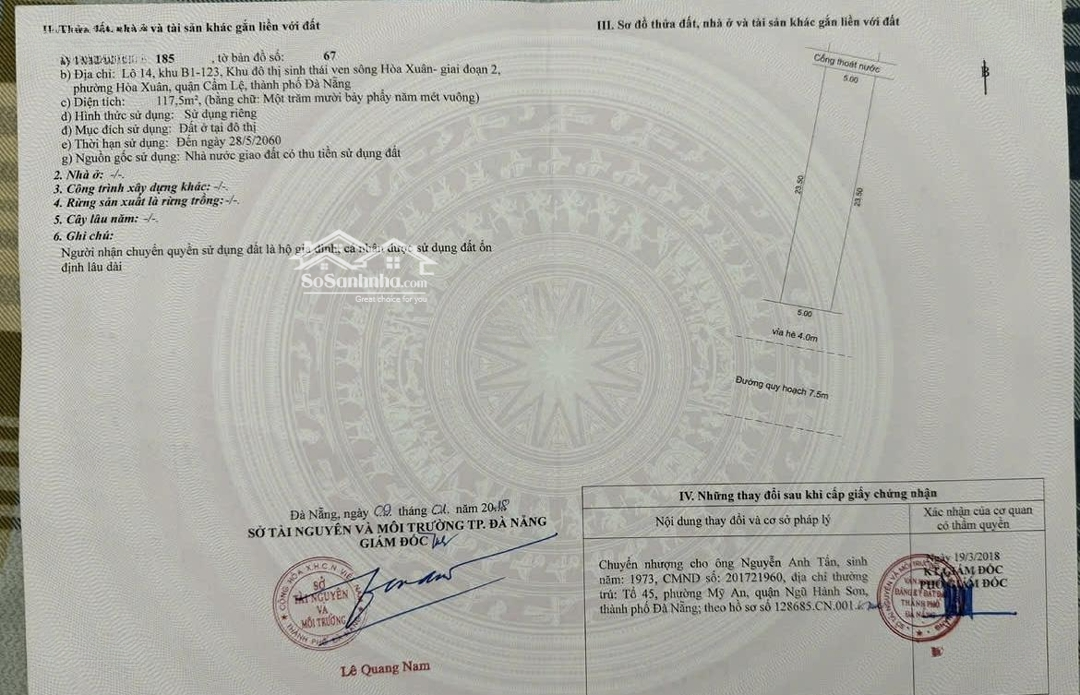 II. Thửa đất, nhà ở và tài sản khác gắn liền với đất
185 , tờ bản đồ số: 67
b) Địa chỉ: Lô 14, khu B1-123, Khu đô thị sinh thái ven sông Hòa Xuân- giai đoạn 2,
phường Hòa Xuân, quận Cẩm Lệ, thành phố Đà Nẵng
c) Diện tích: 117,5m², (bằng chữ: Một trăm mười bảy phẩy năm mét vuông)
d) Hình thức sử dụng: Sử dụng riêng
đ) Mục đích sử dụng: Đất ở tại đô thị
e) Thời hạn sử dụng: Đến ngày 28/5/2060
g) Nguồn gốc sử dụng: Nhà nước giao đất có thu tiền sử dụng đất
2. Nhà ở: -/-.
3. Công trình xây dựng khác: -/-.
4. Rừng sản xuất là rừng trồng: -/-.
5. Cây lâu năm: -/-.
6. Ghi chú:
Người nhận chuyển quyền sử dụng đất là hộ gia đình, cá nhân được sử dụng đất ổn
định lâu dài
SoSanhnha.com
Great choice for you
Đà Nẵng, ngày 09 tháng 01 năm 2018
SỞ TÀI NGUYÊN VÀ MÔI TRƯỜNG TP. ĐÀ NẴNG
GIÁM ĐỐC
SỞ
TÀI NGUYÊN
VÀ
MÔI TRƯỜNG
Lê Quang Nam
III. Sơ đồ thửa đất, nhà ở và tài sản khác gắn liền với đất
B
Cống thoát nước
5.00
23.50
23.50
5.00
vỉa hè 4.0m
Đường quy hoạch 7.5m
IV. Những thay đổi sau khi cấp giấy chứng nhận
Nội dung thay đổi và cơ sở pháp lý
Xác nhận của cơ quan
có thẩm quyền
Chuyển nhượng cho ông Nguyễn Anh Tấn, sinh
năm: 1973, CMND số: 201721960, địa chỉ thường
trú: Tổ 45, phường Mỹ An, quận Ngũ Hành Sơn,
thành phố Đà Nẵng; theo hồ sơ số 128685.CN.001
Ngày 19/3/2018
KT.GIÁM ĐỐC
PHÓ GIÁM ĐỐC
ĐĂNG KÝ ĐẤT ĐAI
THÀNH PHỐ
ĐÀ NẴNG